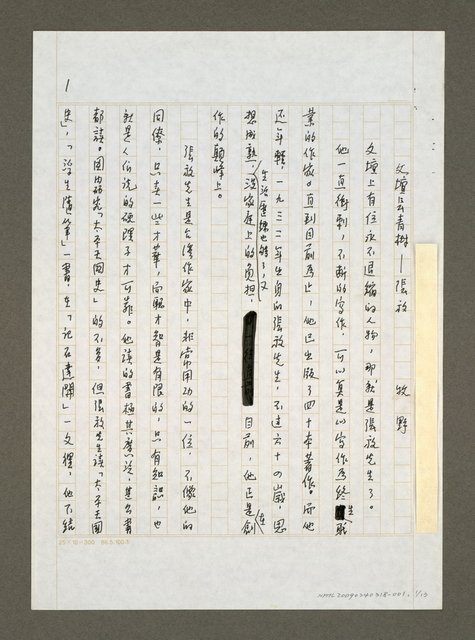 文壇長青樹—張放　牧野
文壇上有位永不退縮的人物，那就是張放先生了。
他一直衝刺，不斷的寫作，可以真是以寫作為終生職
業的作家。直到目前為止，他已出版了四十本著作。而他
還年輕，一九三二年生身的張放先生，不過六十四歲，思
想成熟，生活歷練也夠了，又沒家庭上的負担，目前，他正是在創
作的顛峰上。
張放先生是台灣作家中，非常用功的一位，不像他的
同儕，只靠一些才華，而駆才智是有限的，只有知識，也
就是人們說的硬理子才可靠。他讀的書極其廣泛，甚么書
都讀。固功研究「太平天國史」的不多，但張放先生讀「太平天國
史」，「浮生隨筆」一書，在「記石達開」一文裡，他下結
1
25×12=300 86.5.100本
NMTL20090240318-001, 1/13